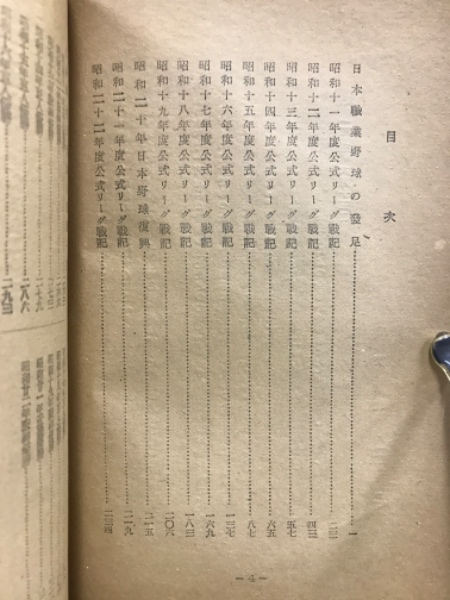 目次
日本職業野球の發足……一
昭和十一年度公式リーグ戰記……二三
昭和十二年度公式リーグ戰記……四三
昭和十三年度公式リーグ戰記……五七
昭和十四年度公式リーグ戰記……六五
昭和十五年度公式リーグ戰記……八七
昭和十六年度公式リーグ戰記……一三七
昭和十七年度公式リーグ戰記……一六九
昭和十八年度公式リーグ戰記……一八三
昭和十九年度公式リーグ戰記……二〇六
昭和二十年日本野球復興……二一五
昭和二十一年度公式リーグ戰記……二一九
昭和二十二年度公式リーグ戰記……二三四
—4—